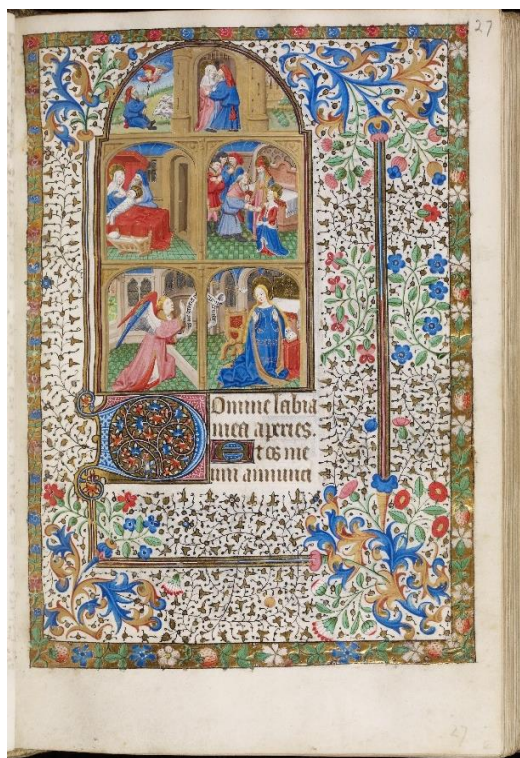 27
Domine labia
mea aperies.
Et os me
um annunci
27